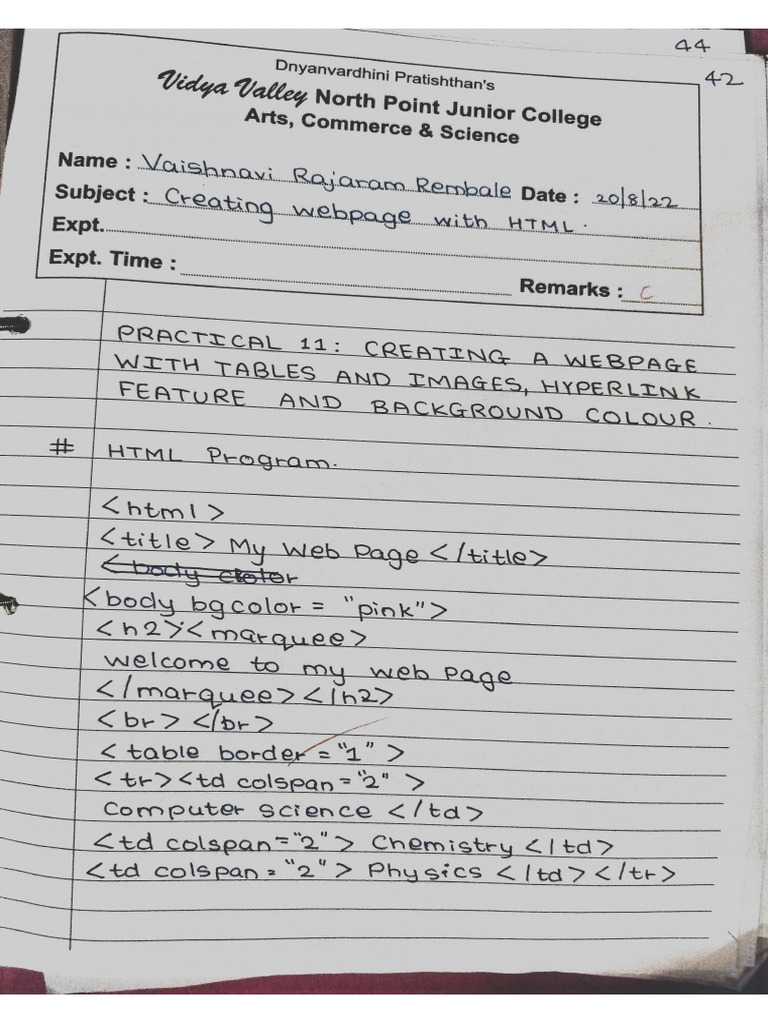 44
42
Dnyanvardhini Pratishthan's
Vidya Valley North Point Junior College
Arts, Commerce & Science
Name : Vaishnavi Rajaram Rembale Date : 20/8/22
Subject : Creating webpage with HTML.
Expt.
Expt. Time :
Remarks : C
PRACTICAL 11: CREATING A WEBPAGE
WITH TABLES AND IMAGES, HYPERLINK
FEATURE AND BACKGROUND COLOUR.
# HTML Program.
<html>
<title> My Web Page </title>
<body bgcolor = "pink">
<h2><marquee>
welcome to my web page
</marquee></h2>
<br> </br>
<table border = "1" >
<tr><td colspan = "2" >
Computer science </td>
<td colspan="2"> Chemistry </td>
<td colspan = "2" > Physics </td></tr>